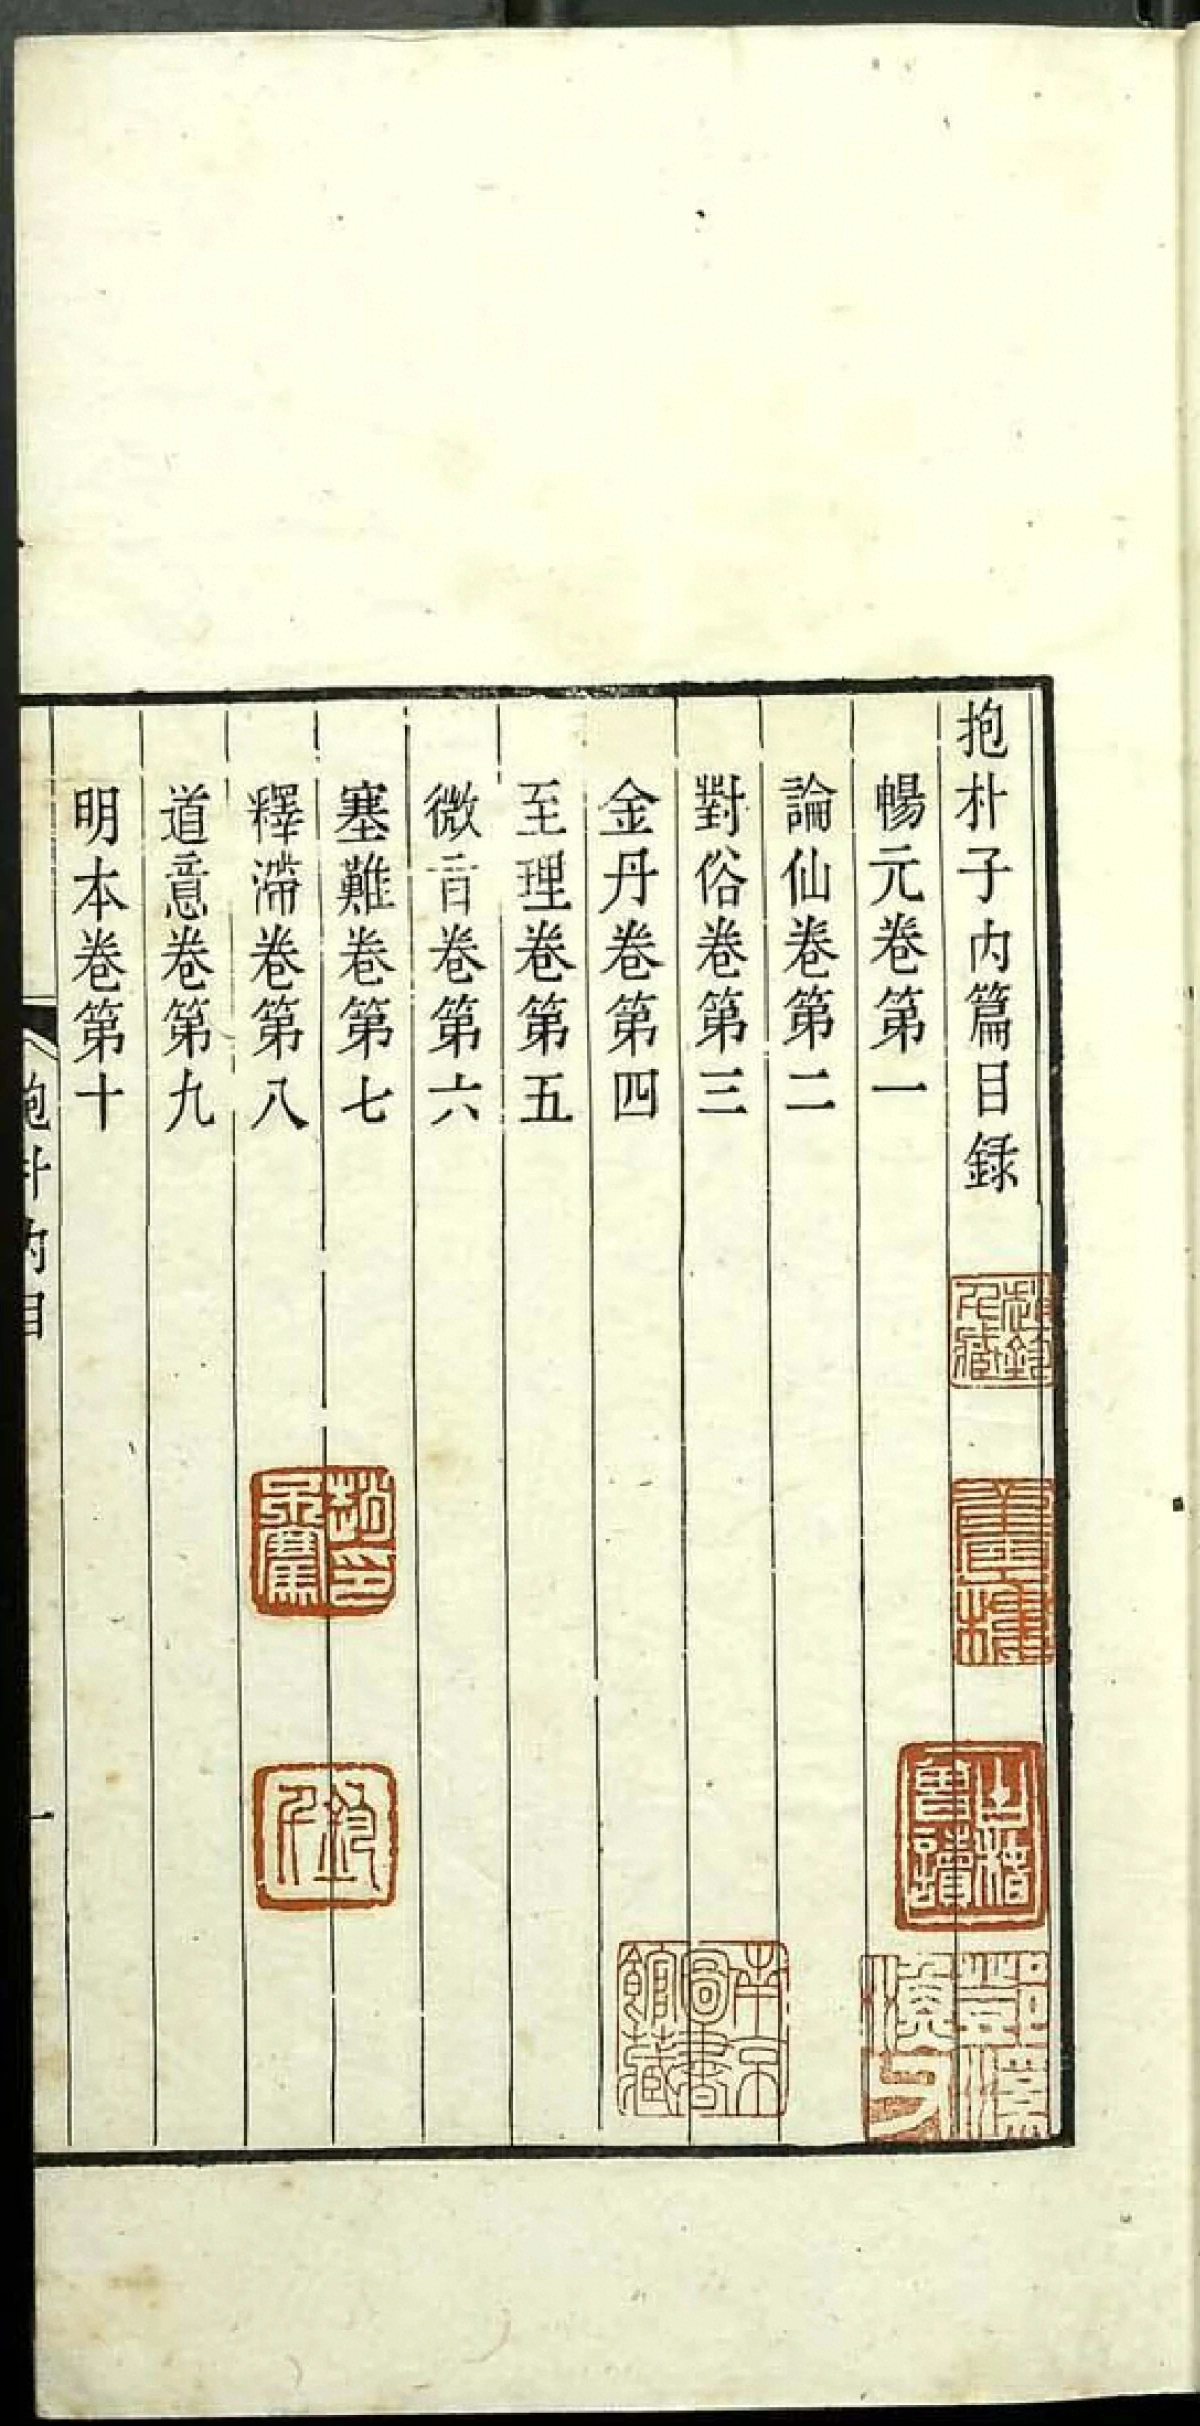 抱朴子内篇目録
暢元卷第一
論仙卷第二
對俗卷第三
金丹卷第四
至理卷第五
微旨卷第六
塞難卷第七
釋滯卷第八
道意卷第九
明本卷第十
抱朴内目
一
南京圖書館藏